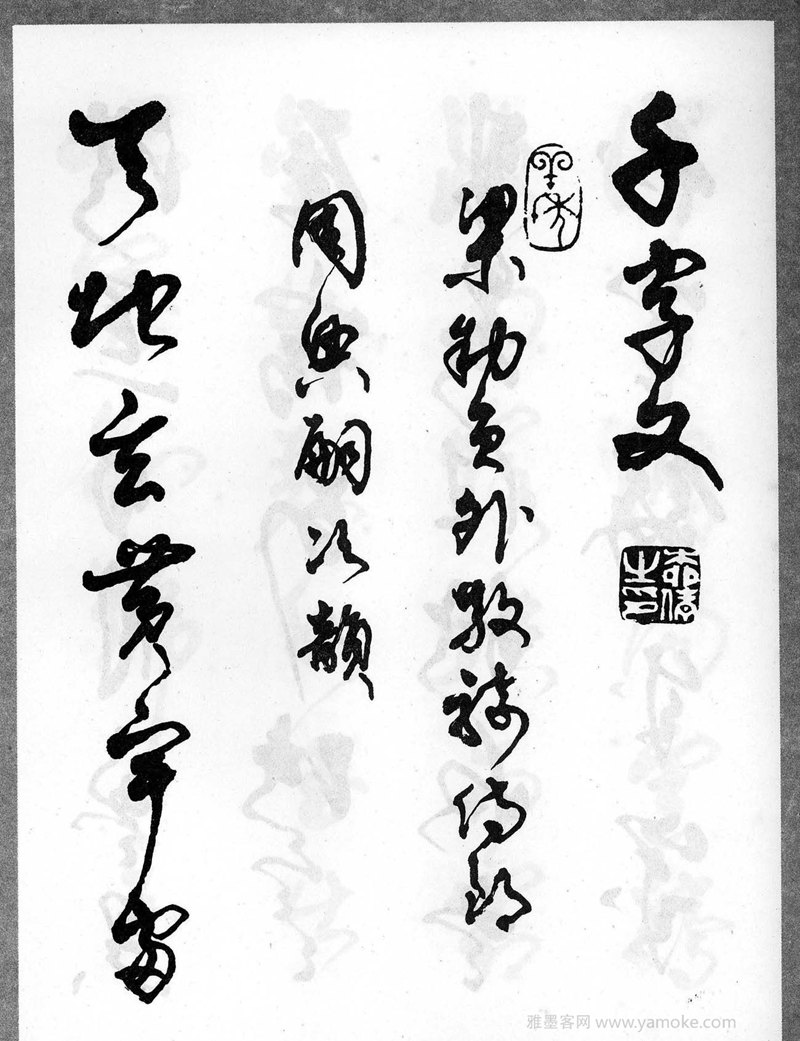 千字文
梁勅員外散騎侍郎
周興嗣次韻
天地玄黄宇宙
雅墨客网 www.yamoke.com